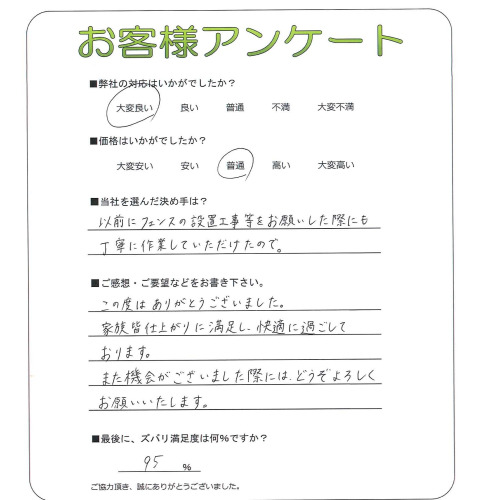 お客様アンケート
■弊社の対応はいかがでしたか？
大変良い 良い 普通 不満 大変不満
■価格はいかがでしたか？
大変安い 安い 普通 高い 大変高い
■当社を選んだ決め手は？
以前にフェンスの設置工事等をお願いした際にも
丁寧に作業していただけたので。
■ご感想・ご要望などをお書き下さい。
この度はありがとうございました。
家族皆仕上がりに満足し、快適に過ごして
おります。
また機会がございました際には、どうぞよろしく
お願いいたします。
■最後に、ズバリ満足度は何%ですか？
95 %
ご協力頂き、誠にありがとうございました。